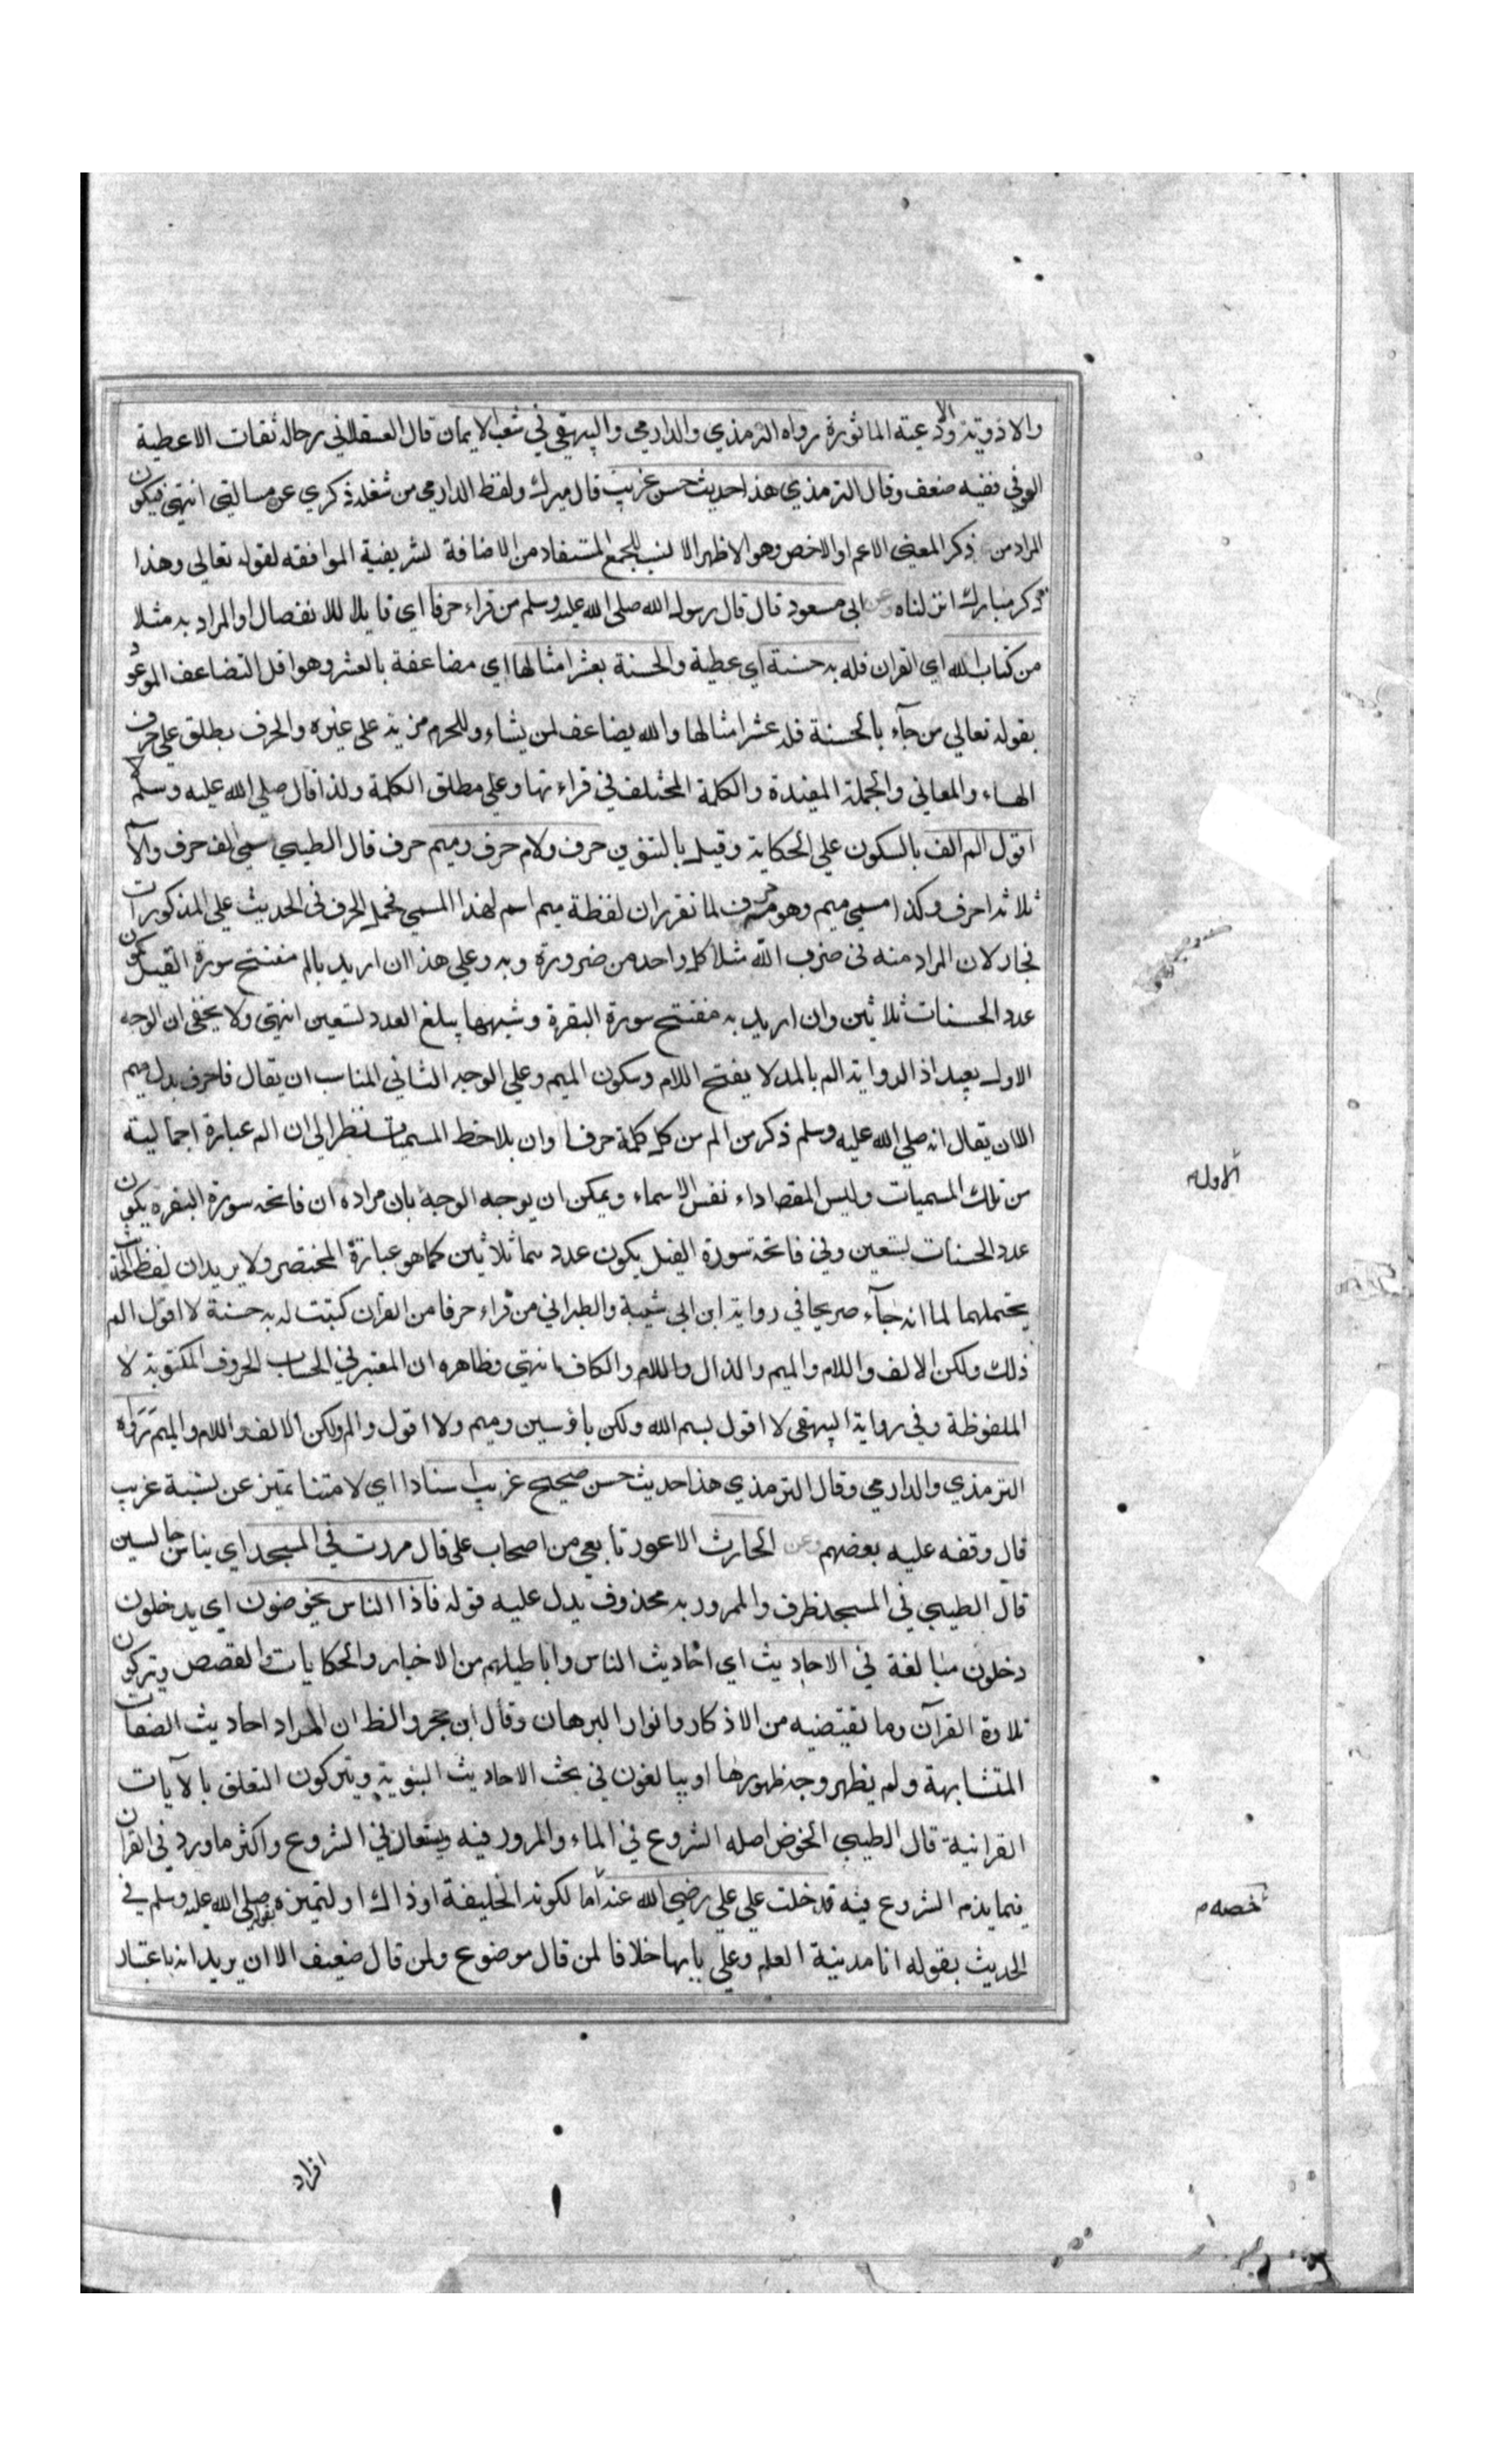 والاذوية والادعية الماثورة رواه الترمذي والدارمي والبيهقي في شعب الايمان قال العسقلاني رجاله ثقات الا عطية
العوفي ففيه ضعف وقال الترمذي هذا حديث حسن غريب قال ميرك ولفظ الدارمي من شغله ذكري عن مسالتي انتهى فيكون
المراد من ذكر المعنى الاعم او الاخص وهو الاظهر الانسب للجمع المستفاد من الاضافة لشريفية الموافقة لقوله تعالى وهذا
ذكر مبارك انزلناه وعن ابي مسعود قال قال رسول الله صلى الله عليه وسلم من قراء حرفا اي قابلا للانفصال او المراد به مثلا
من كتاب الله اي القران فله به حسنة اي عطية والحسنة بعشر امثالها اي مضاعفة بالعشر وهو اقل التضاعف الموعود
بقوله تعالى من جآء بالحسنة فله عشر امثالها والله يضاعف لمن يشاء وللحرم مزية على غيره والحرف يطلق على حرف
الهجاء والمعاني والجملة المفيدة والكلمة المختلف في قراءتها وعلى مطلق الكلمة ولذا قال صلى الله عليه وسلم لا
اقول الم الف بالسكون على الحكاية وقيل بالتنوين حرف ولام حرف وميم حرف قال الطيبي مسمى الف حرف والا
ثلاثة احرف وكذا مسمى ميم وهو حرف لما تقرر ان لفظة ميم اسم لهذا المسمى فحمل الحرف في الحديث على المذكورات
مجاز لان المراد منه في ضرب الله مثلا كل واحد من ضرورة وبه وعلى هذا ان اريد بالم مفتتح سورة الفيل يكون
عدد الحسنات ثلاثين وان اريد به مفتتح سورة البقرة وشبهها يبلغ العدد تسعين انتهى ولا يخفى ان الوجه
الاول بعيد اذ الرواية الم بالمد لا بفتح اللام وسكون الميم وعلى الوجه الثاني المناسب ان يقال فاحرف بدل ميم
اللان يقال انه صلى الله عليه وسلم ذكر من الم من كل كلمة حرفا وان يلاحظ المسميات نظرا الى ان الم عبارة اجمالية
من تلك المسميات وليس المقصا داء نفس الاسماء ويمكن ان يوجه الوجه بان مراده ان فاتحة سورة البقرة يكون
الاول م
عدد الحسنات تسعين وفي فاتحة سورة الفيل يكون عدد ما ثلاثين كما هو عبارة المختصر ولا يريد ان لفظ الحديث
يحتملهما لما انه جآء صريحا في رواية ابن ابي شيبة والطبراني من قراء حرفا من القران كتبت له به حسنة لا اقول الم
ذلك ولكن الالف واللام والميم والذال واللام والكاف انتهى وظاهره ان المعتبر في الحساب الحروف المكتوبة لا
الملفوظة وفي رواية البيهقي لا اقول بسم الله ولكن باء وسين وميم ولا اقول والم ولكن الالف واللام والميم رواه
الترمذي والدارمي وقال الترمذي هذا حديث حسن صحيح غريب اسنادا اي لا متنا تميز عن نسبة غريب
قال وقفه عليه بعضهم وعن الحارث الاعور تابعي من اصحاب علي قال مررت في المسجد اي بناس جالسين
قال الطيبي في المسجد ظرف والممرور به محذوف يدل عليه قوله فاذا الناس يخوضون اي يدخلون
دخلون مبالغة في الاحاديث اي احاديث الناس واباطيلهم من الاخبار والحكايات والقصص ويتركون
تلاوة القرآن وما تقيتضيه من الاذكار وانوار البرهان وقال ابن حجر والظ ان المراد احاديث الصفات
المتشابهة ولم يظهر وجه ظهورها او يبالغون في بحث الاحاديث النبوية ويتركون التعلق بالآيات
القرانية قال الطيبي الخوض اصله الشروع في الماء والمرور فيه ويستعار في الشروع واكثر ما ورد في القران
فيما يذم الشروع فيه قد خلت على علي رضي الله عنه اما لكونه الخليفة اوذاك او لتميزه بقوله صلى الله عليه وسلم في
خصه م
الحديث بقوله انا مدينة العلم وعلي بابها خلافا لمن قال موضوع ولمن قال ضعيف الا ان يريد انه باعتبار
افراد